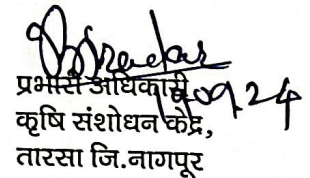 प्रभारी अधिकारी
कृषि संशोधन केंद्र,
तारसा जि.नागपूर